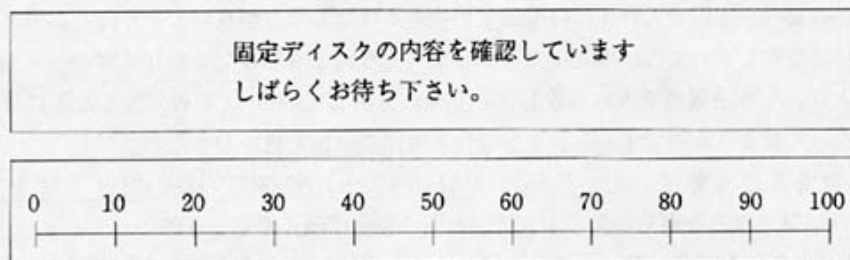 固定ディスクの内容を確認しています
しばらくお待ち下さい。
0 10 20 30 40 50 60 70 80 90 100